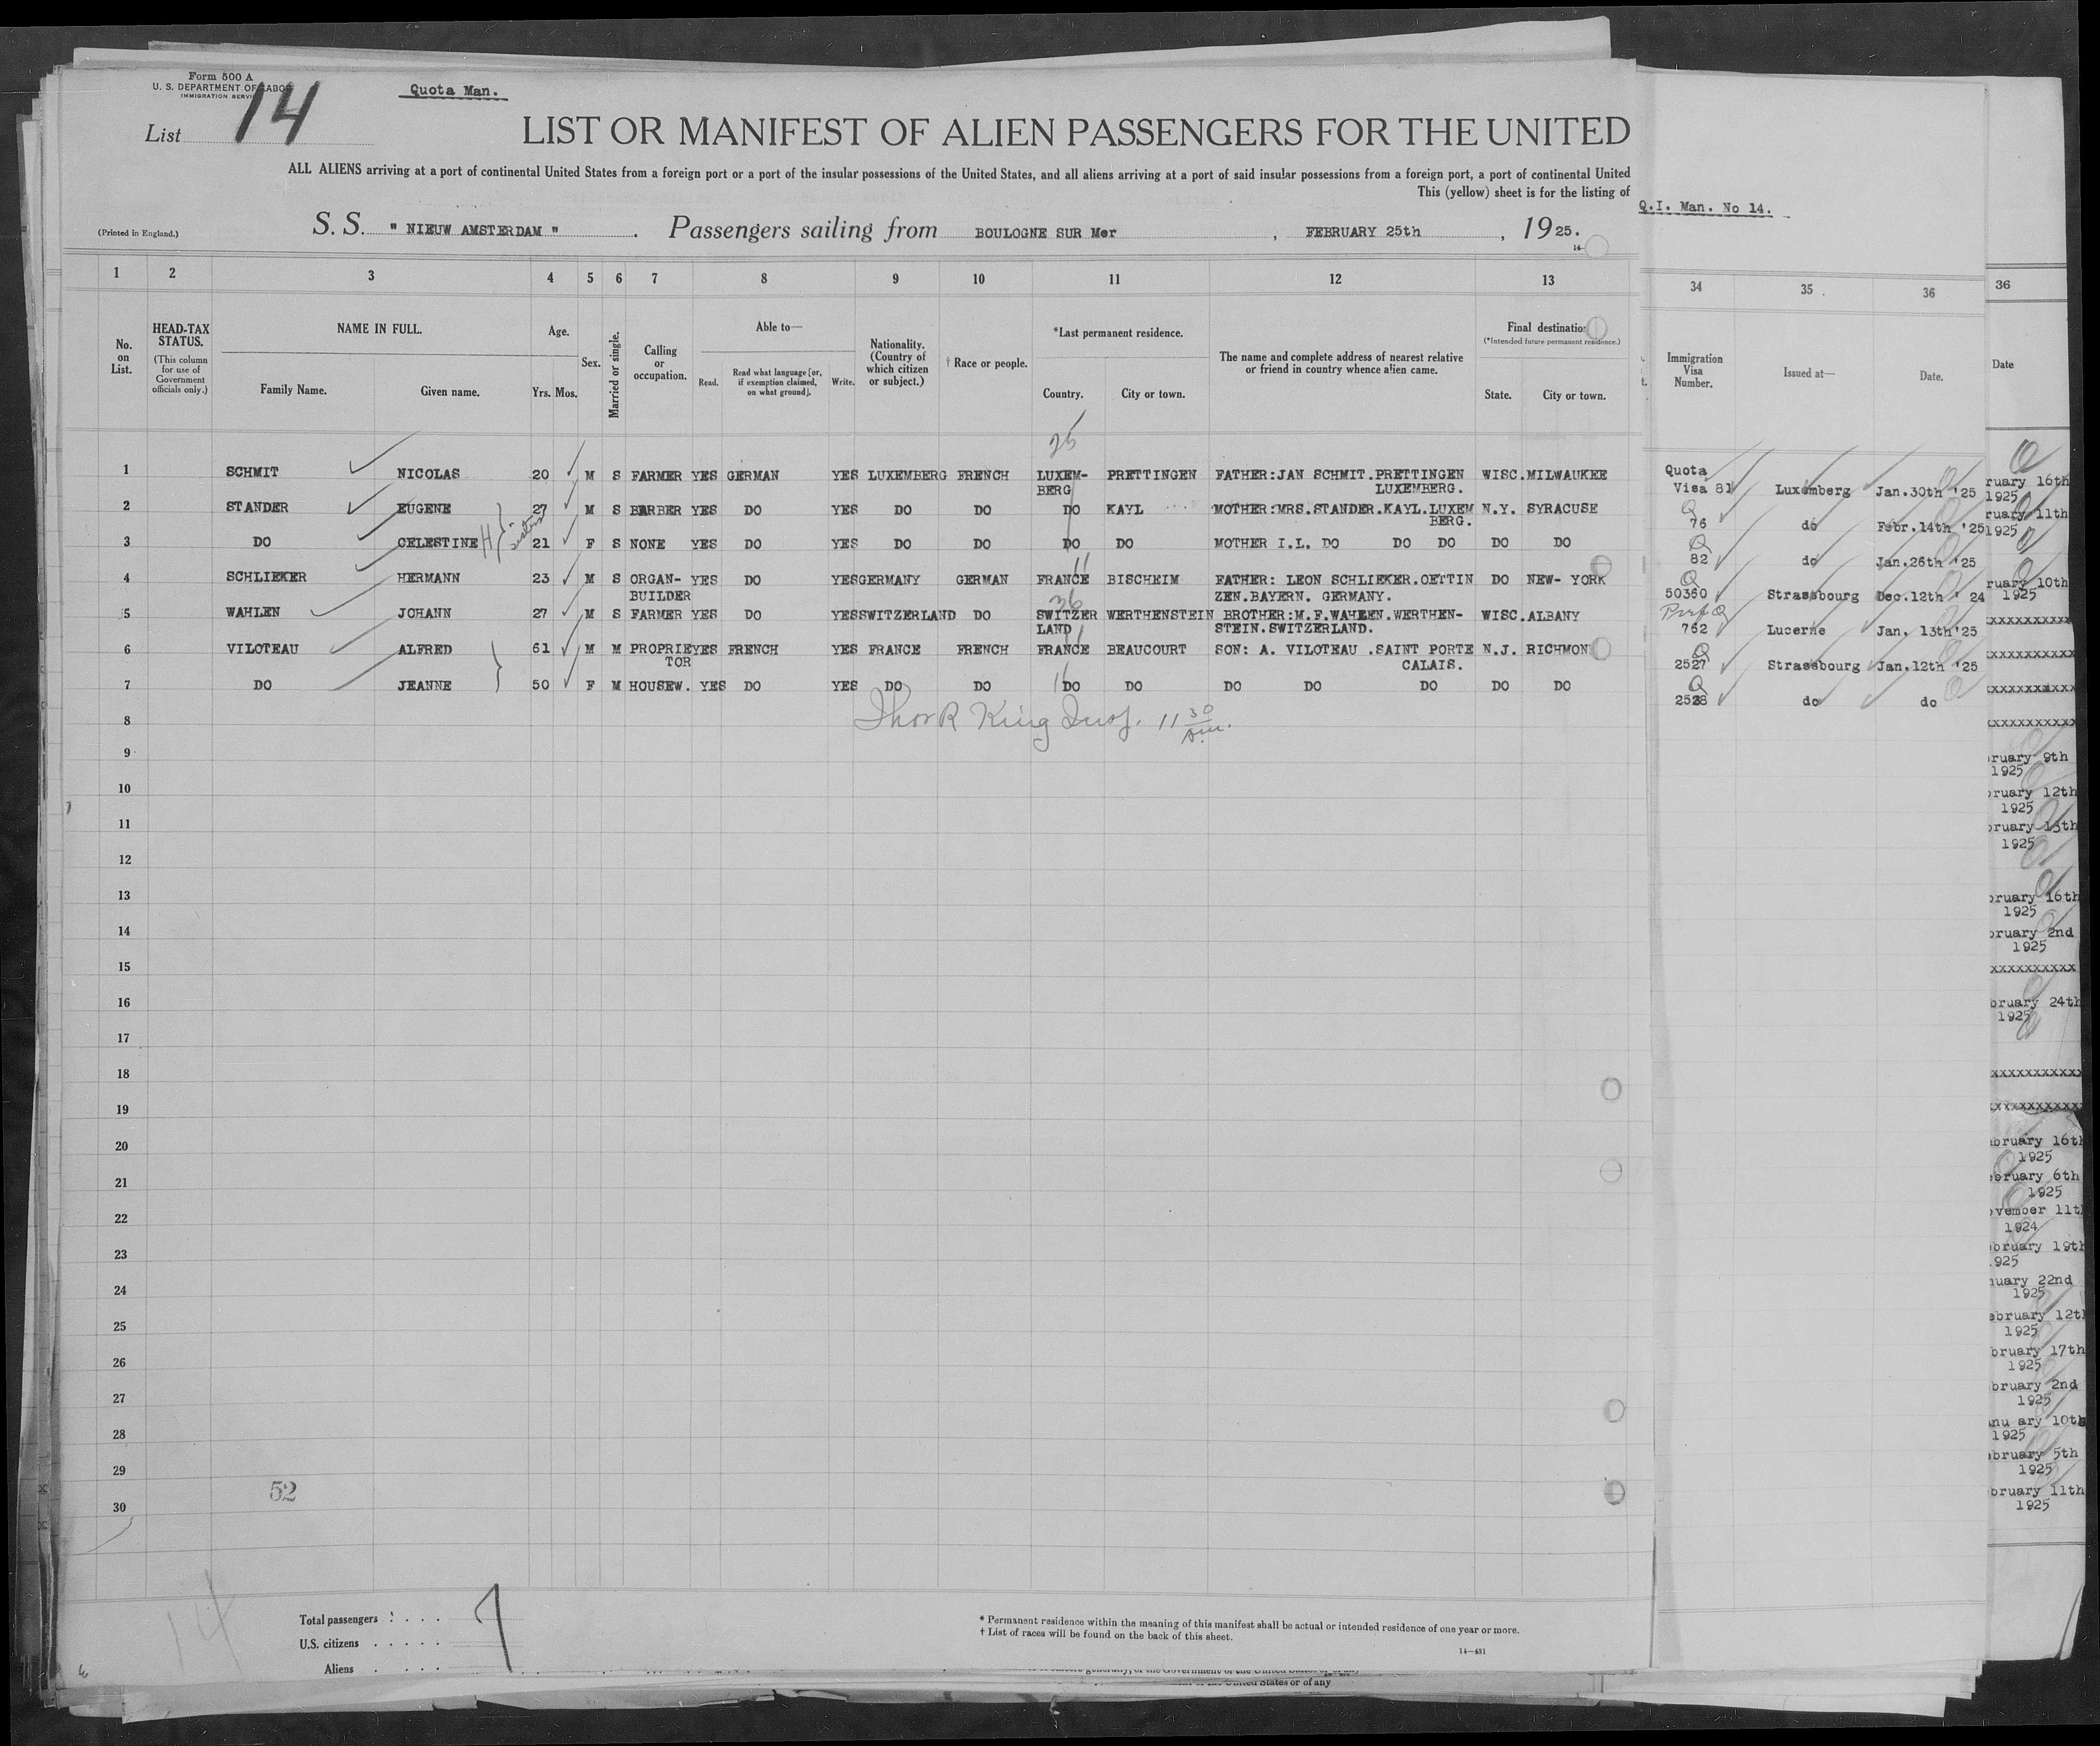 Form 500 A
U. S. DEPARTMENT OF LABOR
IMMIGRATION SERVICE
Quota Man.
List 14
LIST OR MANIFEST OF ALIEN PASSENGERS FOR THE UNITED
ALL ALIENS arriving at a port of continental United States from a foreign port or a port of the insular possessions of the United States, and all aliens arriving at a port of said insular possessions from a foreign port, a port of continental United
This (yellow) sheet is for the listing of
Q.I. Man. No 14.
(Printed in England.)
S. S. " NIEUW AMSTERDAM " . Passengers sailing from BOULOGNE SUR Mer , FEBRUARY 25th , 1925.
14-
1 2 3 4 5 6 7 8 9 10 11 12 13 34 35 36 36
No. on List.
HEAD-TAX STATUS.
(This column for use of Government officials only.)
NAME IN FULL.
Family Name. Given name.
Age.
Yrs. Mos.
Sex.
Married or single.
Calling or occupation.
Able to—
Read. Read what language [or, if exemption claimed, on what ground]. Write.
Nationality. (Country of which citizen or subject.)
† Race or people.
*Last permanent residence.
Country. City or town.
The name and complete address of nearest relative or friend in country whence alien came.
Final destination
(*Intended future permanent residence.)
State. City or town.
Immigration Visa Number.
Issued at—
Date.
Date
25
1 SCHMIT NICOLAS 20 M S FARMER YES GERMAN YES LUXEMBERG FRENCH LUXEM- PRETTINGEN FATHER:JAN SCHMIT.PRETTINGEN WISC.MILWAUKEE Quota
BERG LUXEMBERG. Visa 81 Luxemberg Jan.30th '25
2 STANDER EUGENE 27 M S BARBER YES DO YES DO DO DO KAYL MOTHER:MRS.STANDER.KAYL.LUXEM N.Y. SYRACUSE Q
BERG. 76 do Febr.14th '25
3 DO CELESTINE H sister 21 F S NONE YES DO YES DO DO DO DO MOTHER I.L. DO DO DO DO DO Q
82 do Jan.26th '25
11
4 SCHLIEKER HERMANN 23 M S ORGAN- YES DO YES GERMANY GERMAN FRANCE BISCHEIM FATHER: LEON SCHLIEKER.OETTIN DO NEW- YORK Q
BUILDER ZEN.BAYERN. GERMANY. 50360 Strassbourg Dec.12th ' 24
36
5 WAHLEN JOHANN 27 M S FARMER YES DO YES SWITZERLAND DO SWITZER WERTHENSTEIN BROTHER:M.F.WAHLEN.WERTHEN- WISC.ALBANY Q
LAND STEIN.SWITZERLAND. 762 Lucerne Jan. 13th'25
6 VILOTEAU ALFRED 61 M M PROPRIE YES FRENCH YES FRANCE FRENCH FRANCE BEAUCOURT SON: A. VILOTEAU .SAINT PORTE N.J. RICHMON Q
TOR CALAIS. 2527 Strassbourg Jan.12th '25
7 DO JEANNE 50 F M HOUSEW. YES DO YES DO DO DO DO DO DO DO DO DO Q
2528 do do
Thos R King Insp. 11 30 am.
8
9
10
11
12
13
14
15
16
17
18
19
20
21
22
23
24
25
26
27
28
29
30
52
14
Total passengers : . . . . 7
U.S. citizens . . . . .
Aliens . . . . .
* Permanent residence within the meaning of this manifest shall be actual or intended residence of one year or more.
† List of races will be found on the back of this sheet.
14—431
United States or of any
ruary 16th
1925
ruary 11th
1925
ruary 10th
1925
xxxxxxxxxx
xxxxxxxxxx
xxxxxxxxxx
xxxxxxxxxx
ruary 9th
1925
ruary 12th
1925
ruary 13th
1925
ruary 16th
1925
ruary 2nd
1925
xxxxxxxxxx
bruary 24th
1925
xxxxxxxxxx
xxxxxxxxxx
bruary 16th
1925
ebruary 6th
1925
ovember 11th
1924
bruary 19th
925
nuary 22nd
1925
ebruary 12th
1925
bruary 17th
1925
bruary 2nd
1925
anu ary 10th
1925
ebruary 5th
1925
bruary 11th
1925